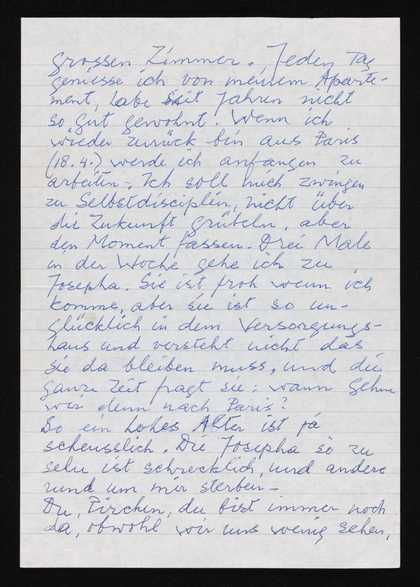 grossen Zimmer. Jeden Tag
geniesse ich von meinem Aparte-
ment, habe seit Jahren nicht
so gut gewohnt. Wenn ich
wieder zurück bin aus Paris
(18.4.) werde ich anfangen zu
arbeiten. Ich soll mich zwingen
zu Selbstdisciplin, nicht über
die Zukunft grübeln, aber
den Moment fassen. Drei Male
in der Woche gehe ich zu
Josepha. Sie ist froh wenn ich
komme, aber sie ist so un-
glücklich in dem Versorgungs-
haus und versteht nicht das
sie da bleiben muss, und die
ganze Zeit fragt sie: wann gehn
wir denn nach Paris?
So ein hohes Alter ist ja
scheusslich. Die Josepha so zu
sehn ist schrecklich, und andere
rund um mir sterben –
Du, Pirchen, du bist immer noch
da, obwohl wir uns wenig sehen,